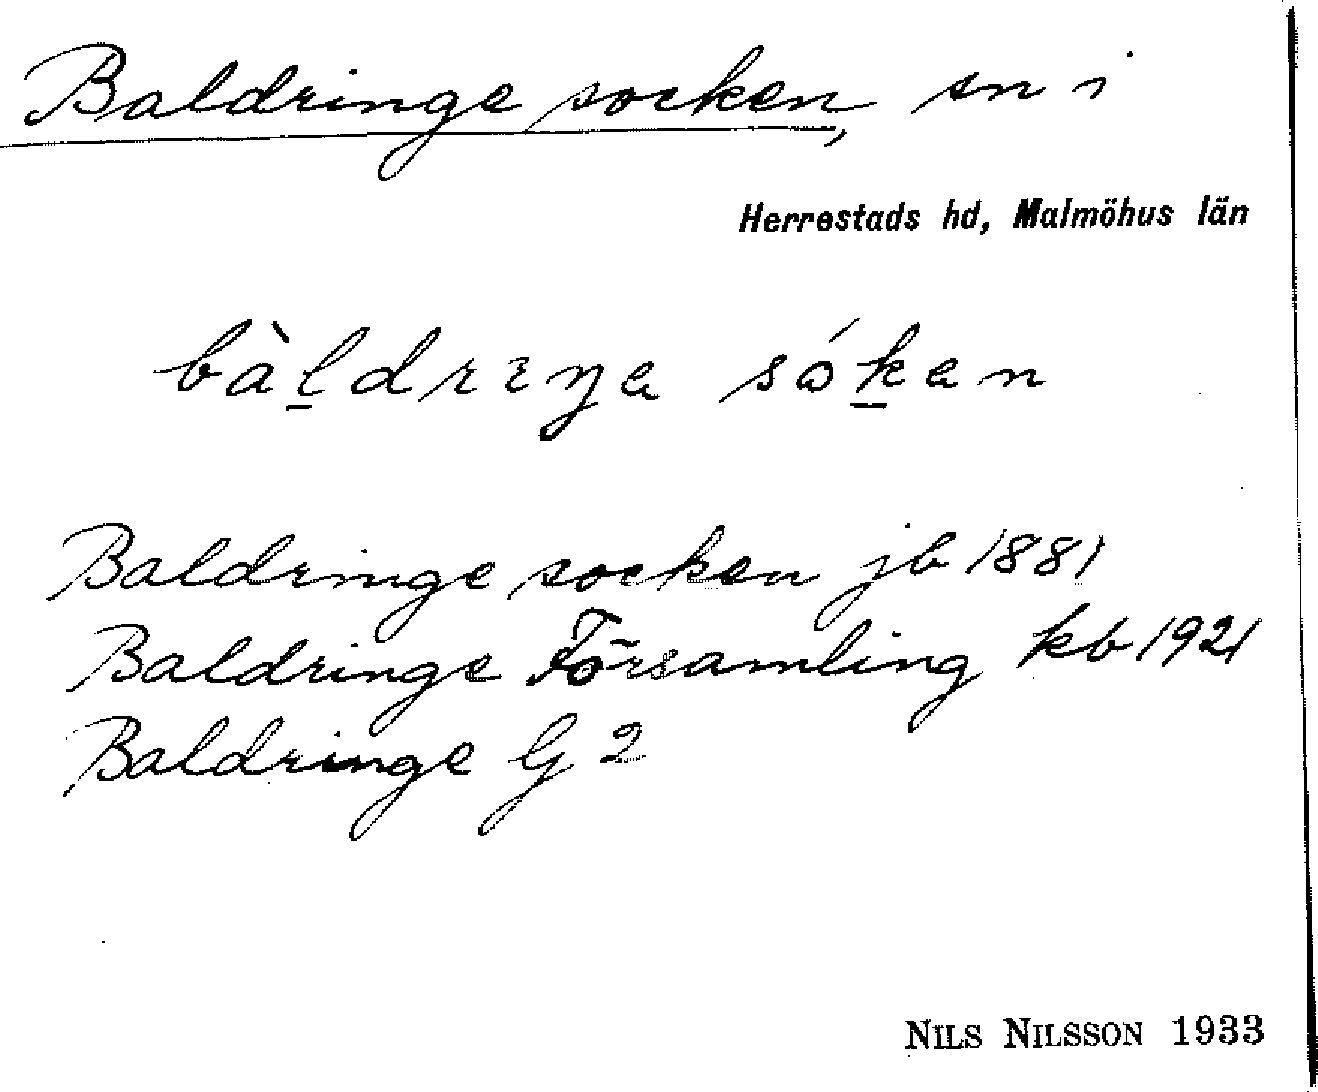 Baldringe socken, sn i
Herrestads hd, Malmöhus län
bàl̠drɪŋa sók̠en
Baldringe socken jb 1881
Baldringe Församling kb 1921
Baldringe G 2
NILS NILSSON 1933